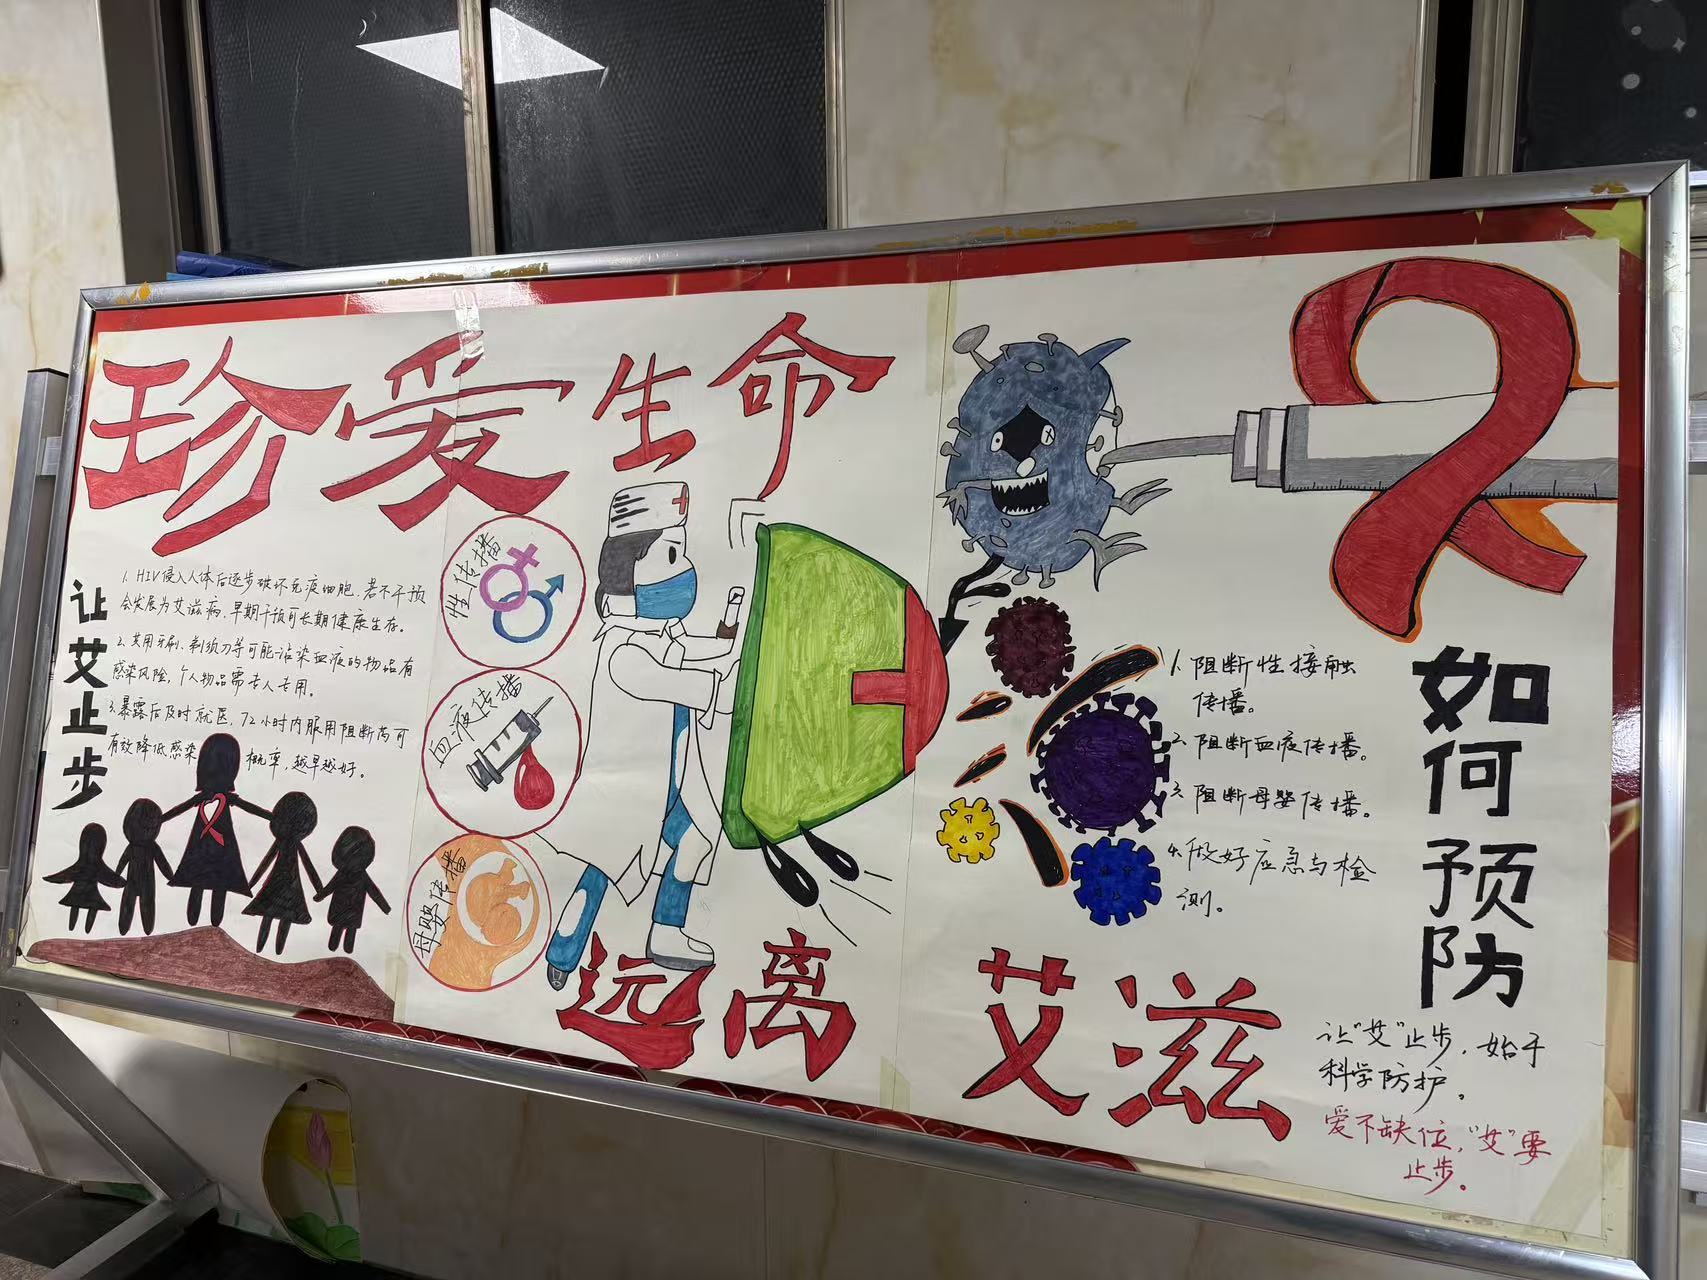 珍爱生命
让艾止步
1. HIV侵入人体后逐步破坏免疫细胞,若不干预
会发展为艾滋病,早期干预可长期健康生存。
2. 共用牙刷、剃须刀等可能沾染血液的物品有
感染风险,个人物品需专人专用。
3. 暴露后及时就医,72小时内服用阻断药可
有效降低感染概率,越早越好。
性传播
血液传播
母婴传播
远离艾滋
如何预防
1. 阻断性接触
传播。
2. 阻断血液传播。
3. 阻断母婴传播。
4. 做好应急与检
测。
让"艾"止步,始于
科学防护。
爱不缺位,"艾"要
止步。